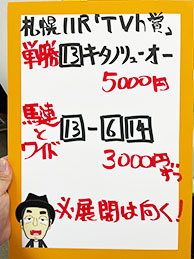 札幌11R「TVh賞」
単勝 13 キタノリューオー
5000円
馬連とワイド
13-6 14
3000円ずつ
必展開は向く!